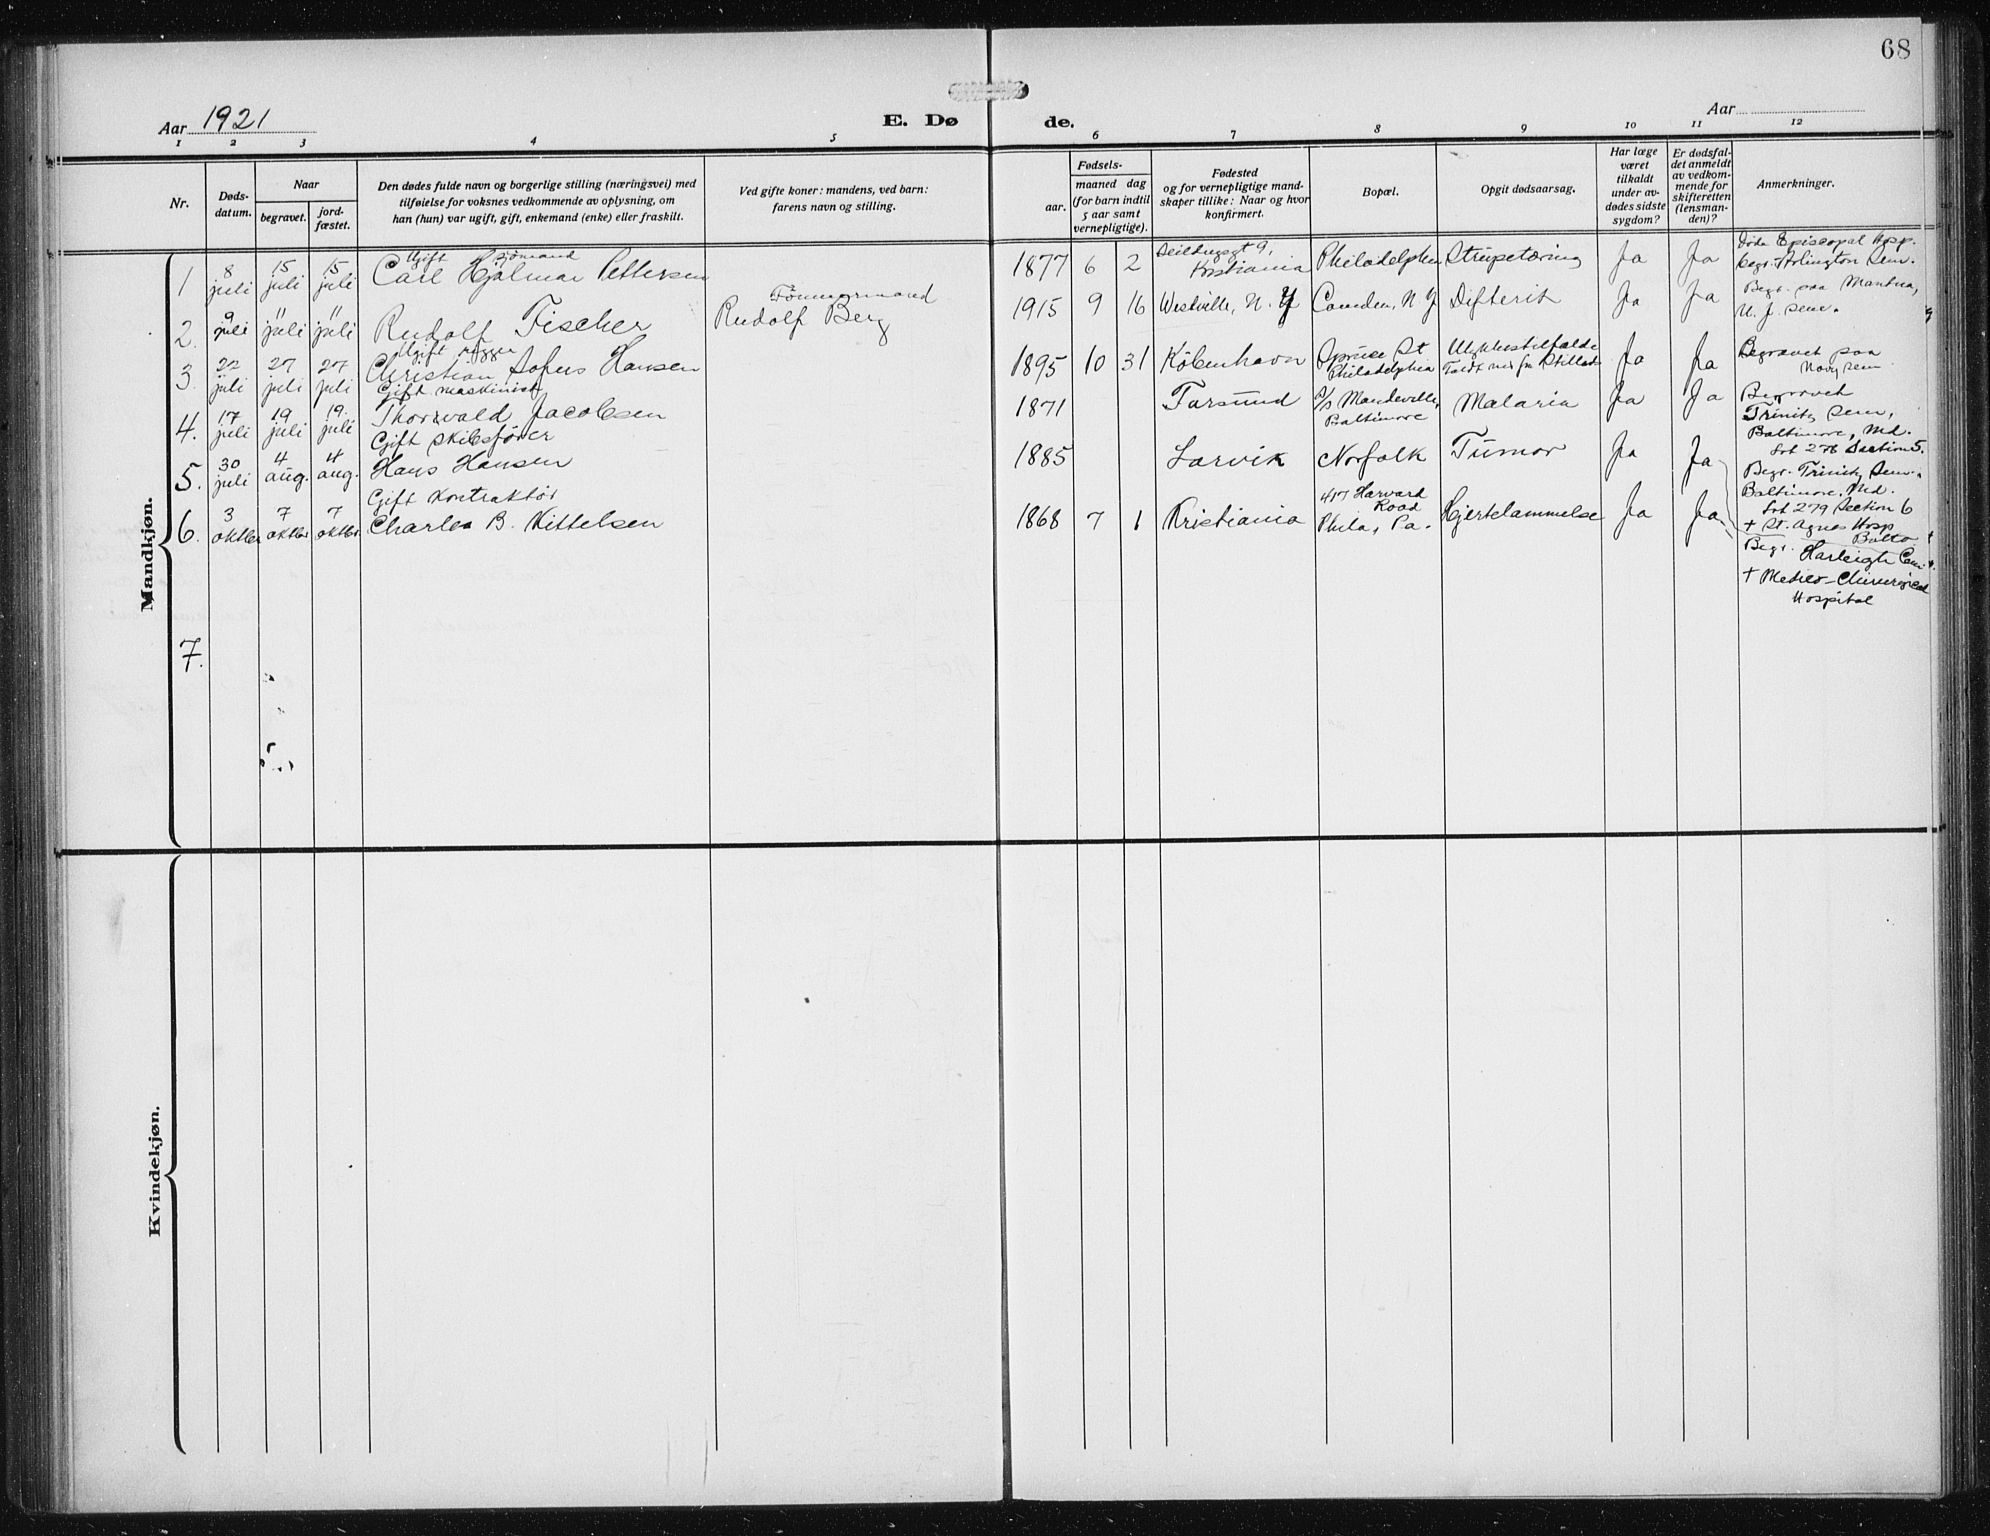 68
Aar 1921
E. Dø de.
Aar
1 2 3 4 5 6 7 8 9 10 11 12
Nr.
Døds-
datum.
Naar
begravet.
jord-
fæstet.
Den dødes fulde navn og borgerlige stilling (næringsvei) med
tilføielse for voksnes vedkommende av oplysning, om
han (hun) var ugift, gift, enkemand (enke) eller fraskilt.
Ved gifte koner: mandens, ved barn:
farens navn og stilling.
Fødsels-
aar.
maaned dag
(for barn indtil
5 aar samt
vernepligtige).
Fødested
og for vernepligtige mand-
skaper tillike: Naar og hvor
konfirmert.
Bopæl.
Opgit dødsaarsag.
Har læge
været
tilkaldt
under av-
dødes sidste
sygdom?
Er dødsfal-
det anmeldt
av vedkom-
mende for
skifteretten
(lensman-
den)?
Anmerkninger.
Mandkjøn.
1
8
juli
15
juli
15
juli
Ugift sjømand
Carl Hjalmar Pettersen
1877 6 2
9,
Kristiania
Philadelphia
Strupetæring
Ja
Ja
Døde Episcopal Hosp.
Begr. Arlington Sem.
2.
9
juli
11
juli
11
juli
Rudolf Fischer
Tømmermand
Rudolf Berg
1915 9 16
Westville, N. Y
Camden, N Y
Difterit
Ja
Ja
Begr. paa Mantua,
N. J. sem.
3.
22
juli
27
juli
27
juli
Ugift rigger
Christian Sofus Hansen
1895 10 31
København
Spruce St
Philadelphia
Ulykkestilfælde
Faldt ned fra Stillads
Ja
Ja
Begravet paa
Navy sem
4.
17
juli
19
juli
19.
juli
Gift maskinist
Thorvald Jacobsen
1871
Farsund
S/S Mandeville,
Baltimore
Malaria
Ja
Ja
Begravet
Trinity Sem,
Baltimore, Md.
Lot 278 Section 5.
5.
30
juli
4
aug.
4
aug.
Gift skibsfører
Hans Hansen
1885
Larvik
Norfolk
Tumor
Ja
Ja
Begr. Trinity Sem.
Baltimore, Md.
Lot 279 Section 6
+ St. Agnes Hosp
Balto.
6.
3
oktbr
7
oktbr
7
oktbr
Gift Kontraktør
Charles B. Kittelsen
1868 7 1
Kristiania
417 Harvard
Road
Phila, Pa.
Hjertelammelse
Ja
Ja
Begr. Harleigh Cem.
+ Medico-Chirurgical
Hospital
7.
Kvindekjøn.